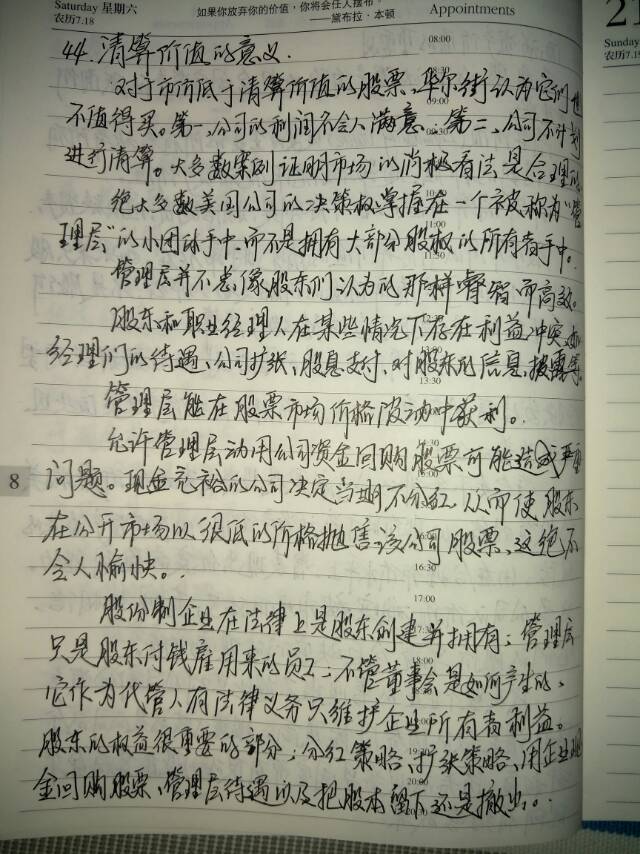 Saturday 星期六
农历7.18
如果你放弃你的价值，你将会任人摆布。
——黛布拉·本顿
Appointments
21
Sunday
农历7.19
44.清算价值的意义.
对于市价低于清算价值的股票、华尔街认为它们也
不值得买。第一、公司的利润不令人满意；第二、公司不计划
进行清算。大多数案例证明市场的消极看法是合理的
绝大多数美国公司的决策权掌握在一个被称为“管
理层”的小团体手中.而不是拥有大部分股权的所有者手中。
管理层并不总像股东们以为的那样睿智而高效。
股东和职业经理人在某些情况下存在利益冲突.如
经理们的待遇、公司扩张、股息支付、对股东的信息披露等。
管理层能在股票市场价格波动中获利。
允许管理层动用公司资金回购股票可能造成严重
8
问题。现金充裕的公司决定当期不分红.从而使股东
在公开市场以很低的价格抛售该公司股票、这绝不
令人愉快。
股份制企业在法律上是股东创建并拥有；管理层
只是股东付钱雇用来的员工；不管董事会是如何产生的、
它作为代管人有法律义务只维护企业所有者利益。
股东的权益很重要的部分；分红策略、扩张策略、用企业现
金回购股票、管理层待遇以及把股本留下还是撤出。
08:00
08:30
09:00
11:00
11:30
13:30
16:30
17:00
18:00
20:00
20:30